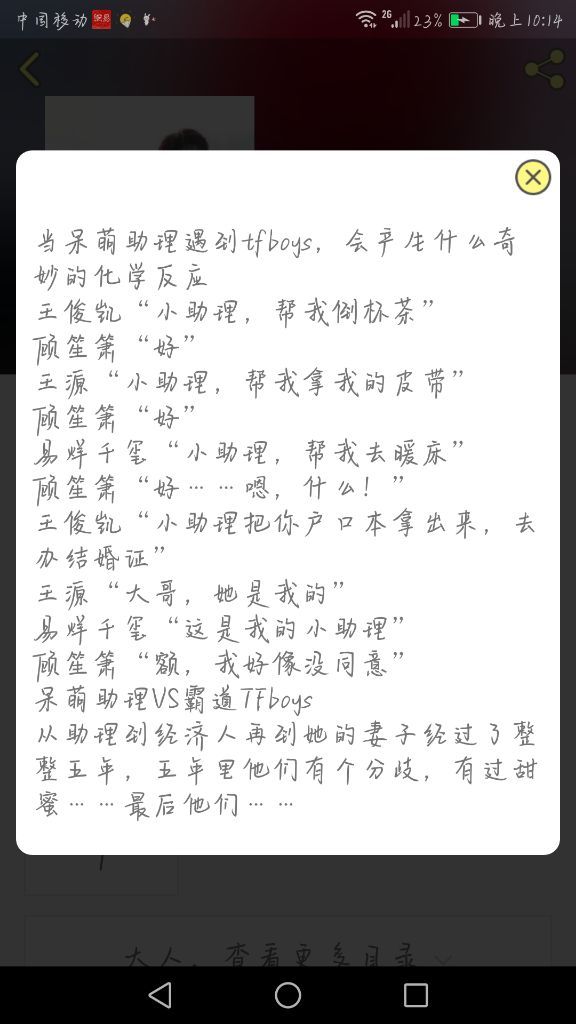 中国移动 2G 23% 晚上10:14
当呆萌助理遇到tfboys，会产生什么奇
妙的化学反应
王俊凯“小助理，帮我倒杯茶”
顾笙箫“好”
王源“小助理，帮我拿我的皮带”
顾笙箫“好”
易烊千玺“小助理，帮我去暖床”
顾笙箫“好……嗯，什么！”
王俊凯“小助理把你户口本拿出来，去
办结婚证”
王源“大哥，她是我的”
易烊千玺“这是我的小助理”
顾笙箫“额，我好像没同意”
呆萌助理VS霸道TFboys
从助理到经济人再到她的妻子经过了整
整五年，五年里他们有个分歧，有过甜
蜜……最后他们……
大人，查看更多目录